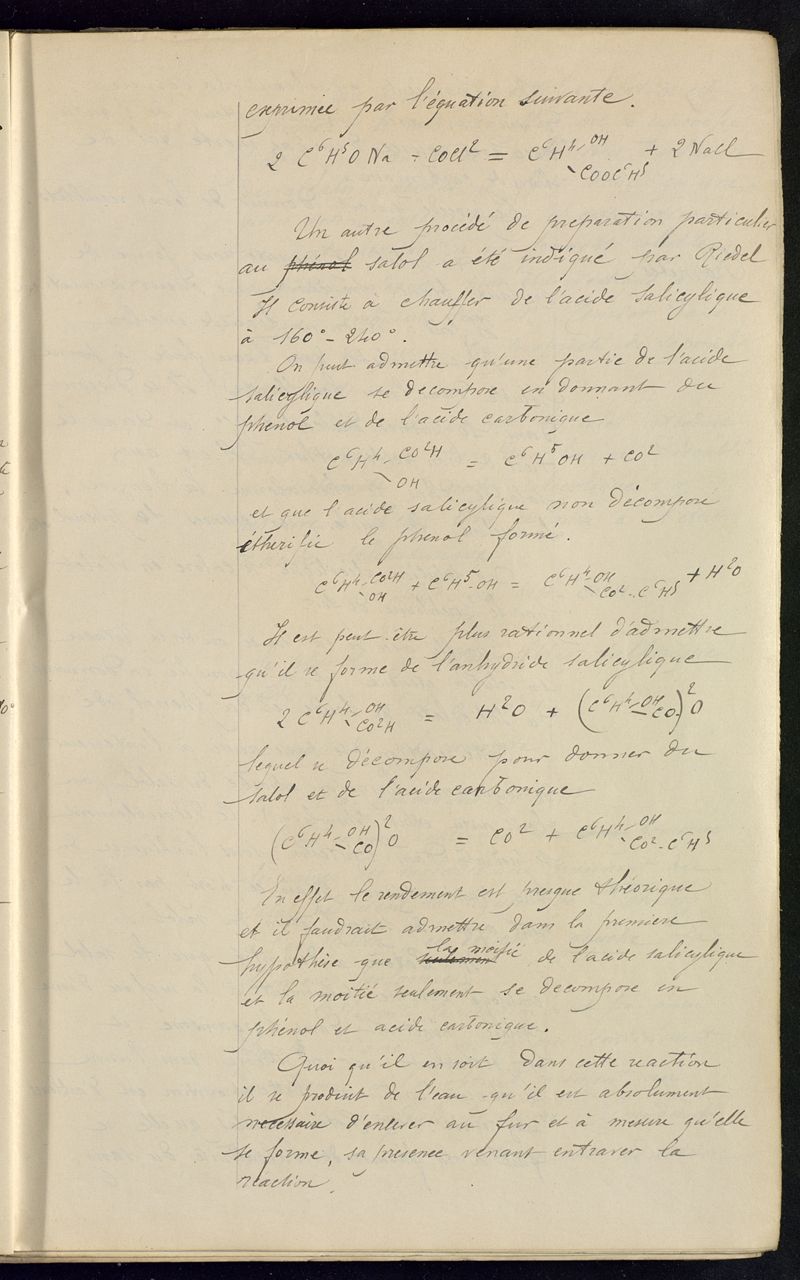 exprimée par l'équation suivante.
2 C⁶H⁵O Na = COCl² = C⁶H⁴ - OH - COOC⁶H⁵ + 2 NaCl
Un autre procédé de preparation particulier
au phénol salol a été indiqué par Riedel
Il consiste à chauffer de l'acide salicylique
à 160° - 240°.
On peut admettre qu'une partie de l'acide
salicylique se decompose en donnant du
phénol et de l'acide carbonique
C⁶H⁴ - CO²H - OH = C⁶H⁵OH + CO²
et que l'acide salicylique non décomposé
étherifie le phenol formé.
C⁶H⁴ - CO²H - OH + C⁶H⁵-OH = C⁶H⁴-OH - CO² - C⁶H⁵ + H²O
Il est peut-être plus rationnel d'admettre
qu'il se forme de l'anhydride salicylique
2 C⁶H⁴ - OH - CO²H = H²O + (C⁶H⁴ - OH - CO)² O
lequel se décompose pour donner du
salol et de l'acide carbonique
(C⁶H⁴ - OH - CO)² O = CO² + C⁶H⁴ - OH - CO² - C⁶H⁵
En effet le rendement est presque théorique
et il faudrait admettre dans la premiere
hypothèse que la moitié de l'acide salicylique
et la moitié seulement se decompose en
phénol et acide carbonique.
Quoi qu'il en soit dans cette reaction
il se produit de l'eau qu'il est absolument
necessaire d'enlever au fur et à mesure qu'elle
se forme, sa presence venant entraver la
reaction.